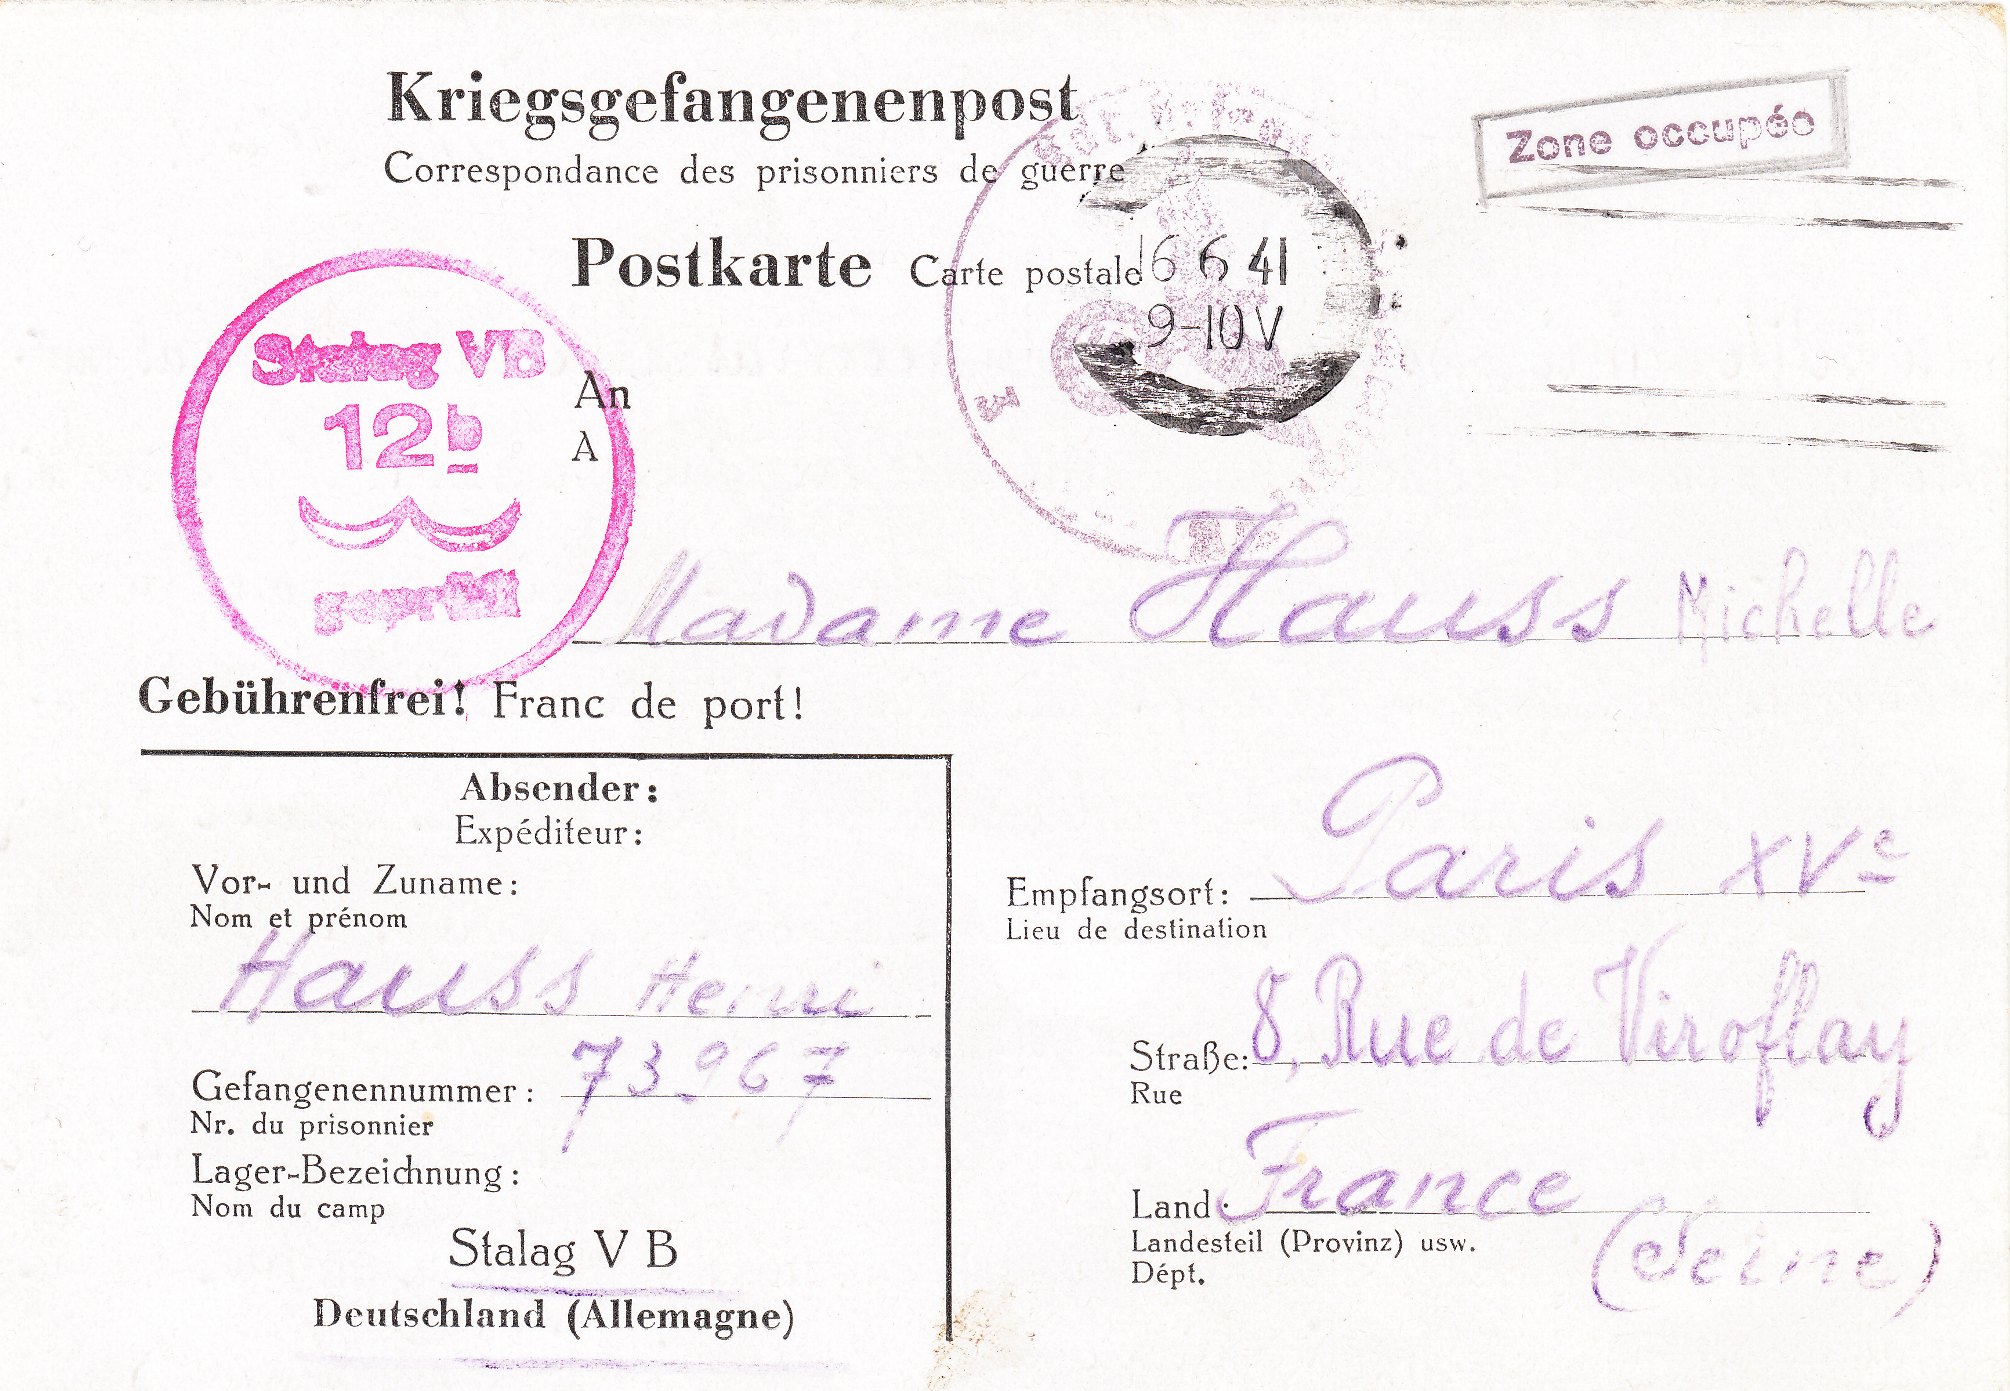 Kriegsgefangenenpost
Correspondance des prisonniers de guerre
Zone occupée
Postkarte Carte postale
16 6 41
9-10 V
Stalag VB
12b
geprüft
An
A
Madame Hauss Michelle
Gebührenfrei! Franc de port!
Absender:
Expéditeur:
Vor- und Zuname:
Nom et prénom
Hauss Henri
Gefangenennummer: 73967
Nr. du prisonnier
Lager-Bezeichnung:
Nom du camp
Stalag V B
Deutschland (Allemagne)
Empfangsort: Paris XVe
Lieu de destination
Straße: 8, Rue de Viroflay
Rue
Land: France
Landesteil (Provinz) usw. (Seine)
Dépt.